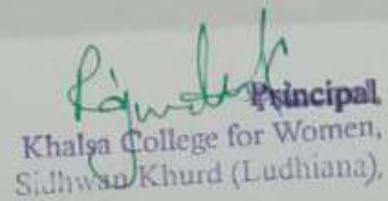 Principal
Khalsa College for Women,
Sidhwan Khurd (Ludhiana),